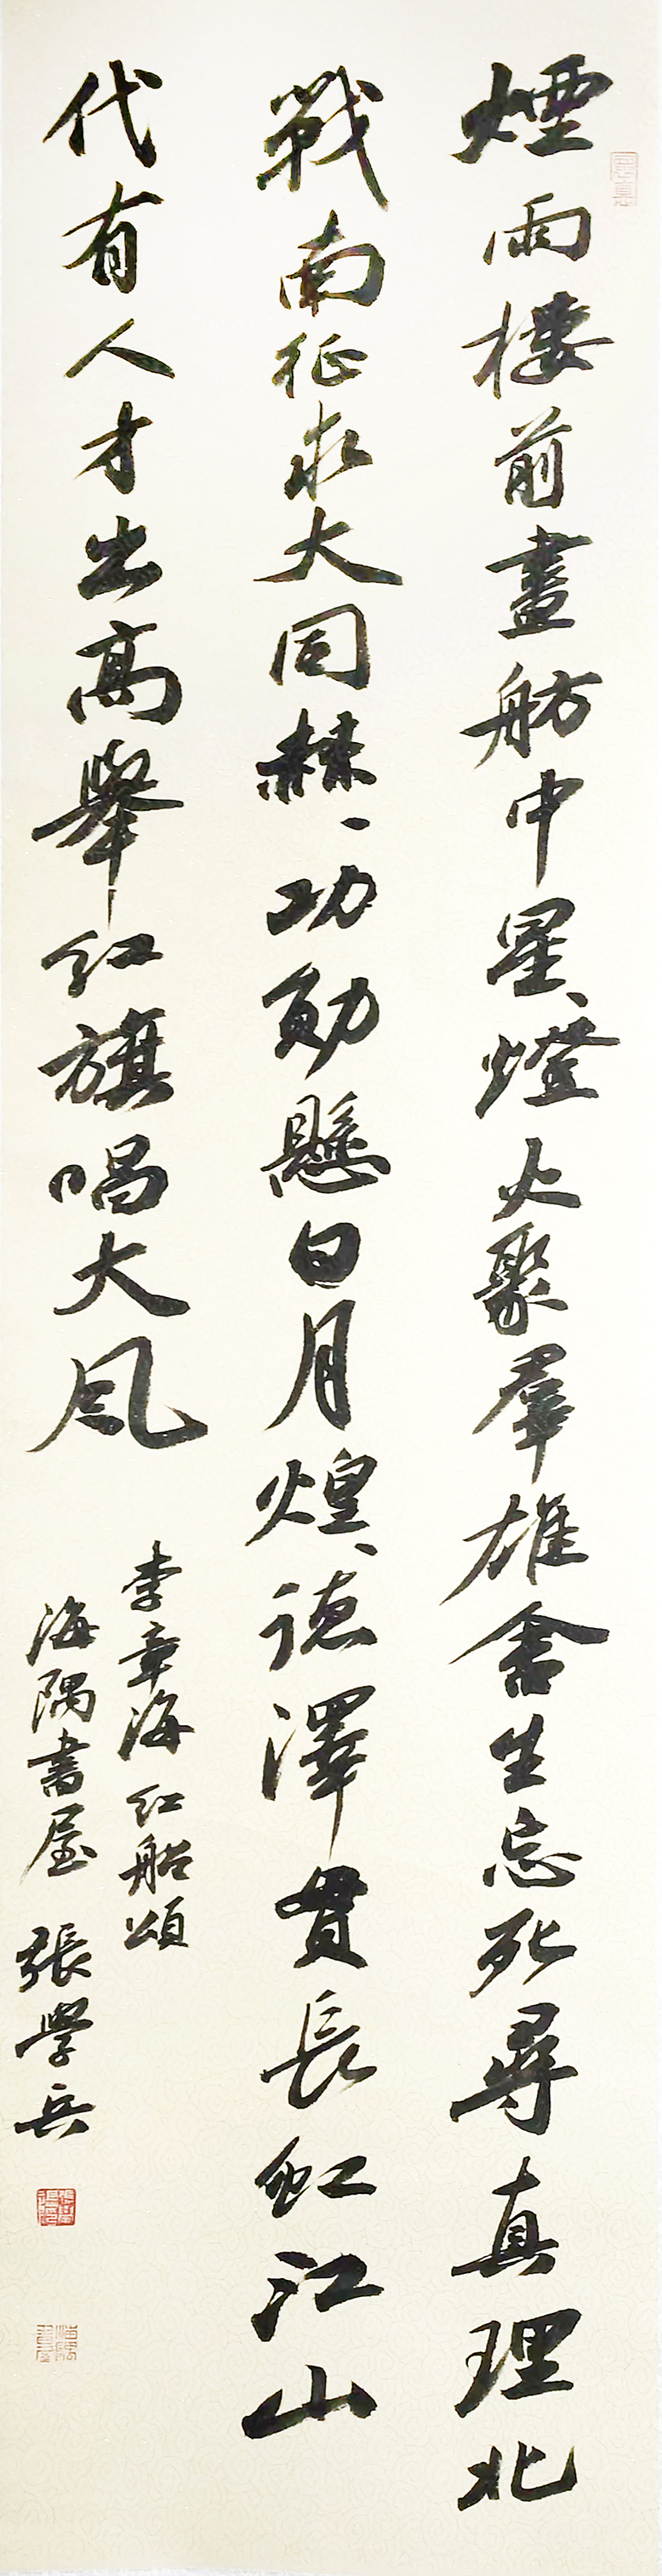 煙雨樓前畫舫中星、燈火聚羣雄舍生忘死尋真理北
戰南征求大同赫、功勛懸日月煌、德澤貫長虹江山
代有人才出高舉紅旗唱大風
李章海紅船頌
海隅書屋張學兵